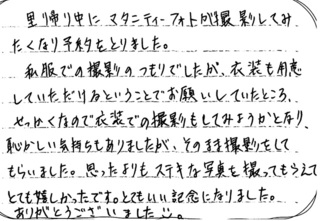 里帰り中にマタニティーフォトが撮影してみ
たくなり予約をとりました。
私服での撮影のつもりでしたが、衣装も用意
していただけるということでお願いしていたところ、
せっかくなので衣装での撮影もしてみようかとなり、
恥かしい気持ちもありましたが、そのまま撮影もして
もらいました。思ったよりもステキな写真を撮ってもらえて
とても嬉しかったです。とてもいい記念になりました。
ありがとうございました